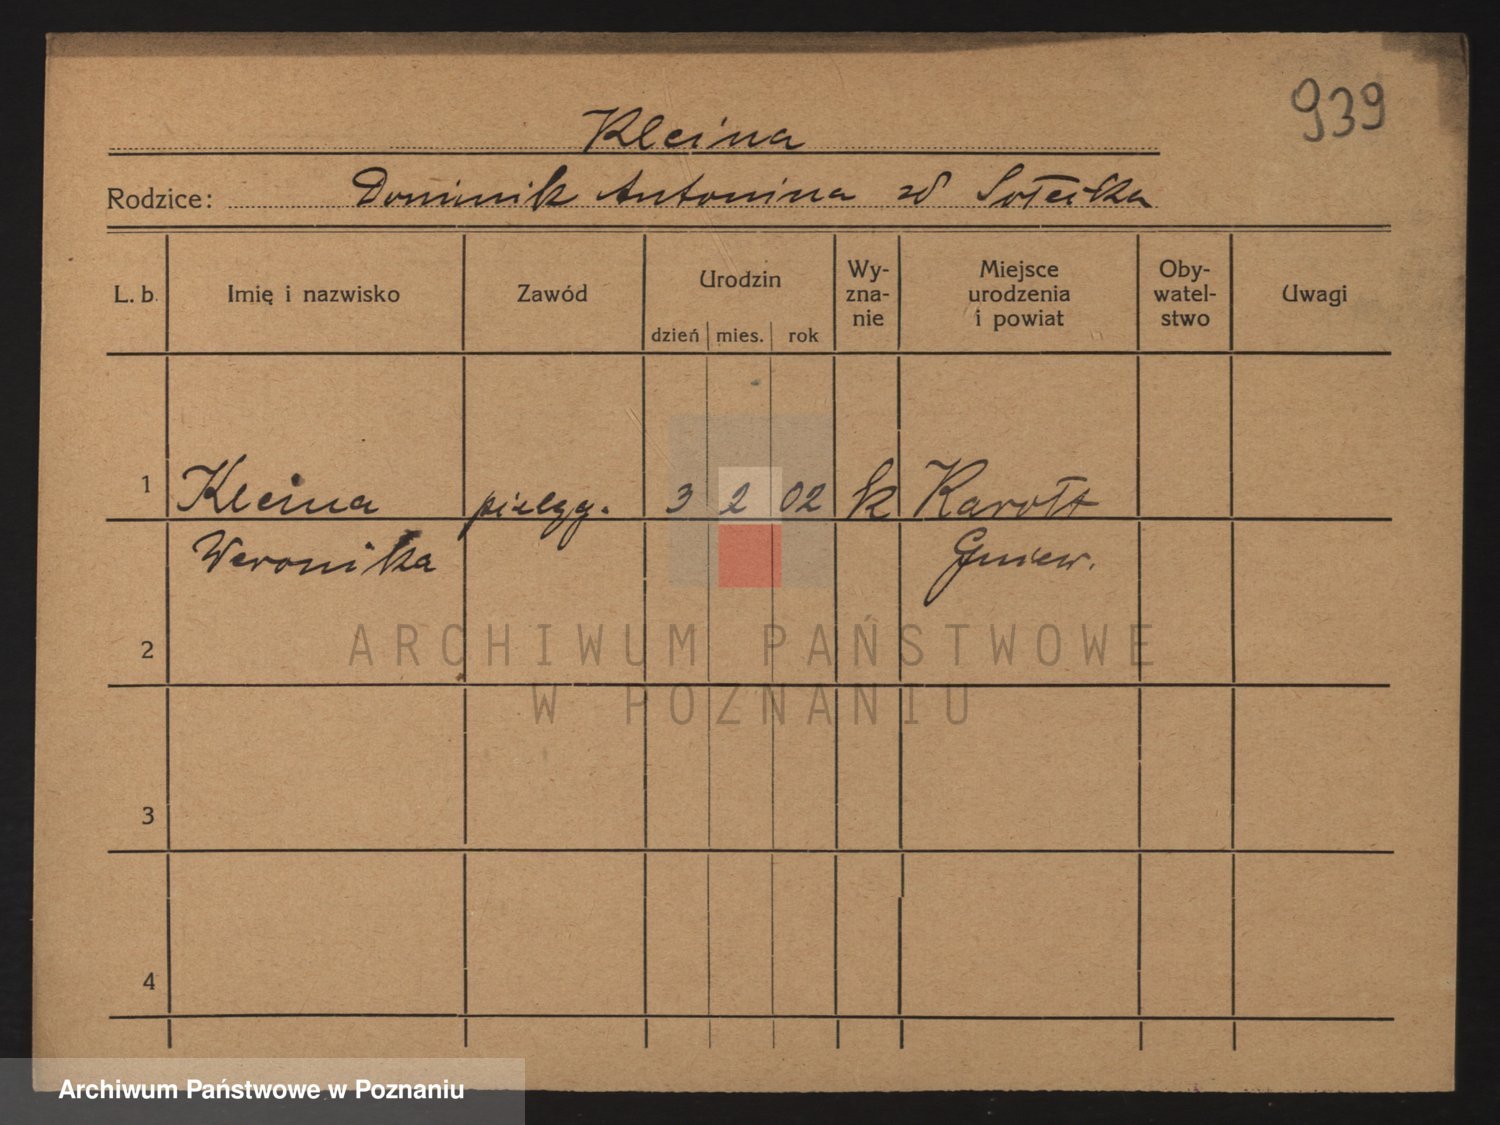 939
Kleina
Rodzice: Dominik Antonina zd Sołecka
L. b. Imię i nazwisko Zawód Urodzin Wy-zna-nie Miejsce urodzenia i powiat Oby-watel-stwo Uwagi
dzień mies. rok
1 Kleina pielęg. 3 2 02 k
Weronika Gniew.
2
3
4
ARCHIWUM PAŃSTWOWE
W POZNANIU
Archiwum Państwowe w Poznaniu